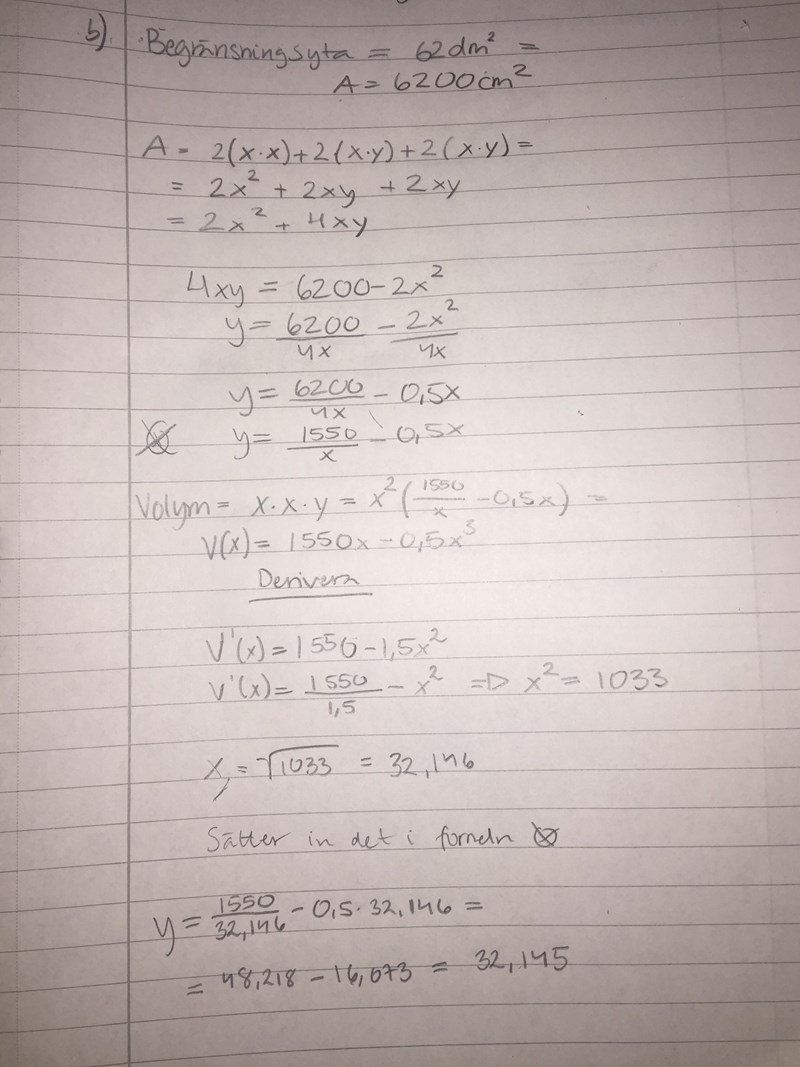 b). Begränsningsyta = 62dm² =
A = 6200cm²
A = 2(x·x)+2(x·y)+2(x·y)=
= 2x² + 2xy + 2xy
= 2x² + 4xy
4xy = 6200-2x²
y = 6200/4x - 2x²/4x
y = 6200/4x - 0,5x
⊗ y = 1550/x - 0,5x
Volym = x·x·y = x²(1550/x - 0,5x) =
V(x) = 1550x - 0,5x³
Derivera
V'(x) = 1550-1,5x²
V'(x) = 1550/1,5 - x² => x² = 1033
x, = √1033 = 32,146
Sätter in det i formeln ⊗
y = 1550/32,146 - 0,5·32,146 =
= 48,218 - 16,073 = 32,145